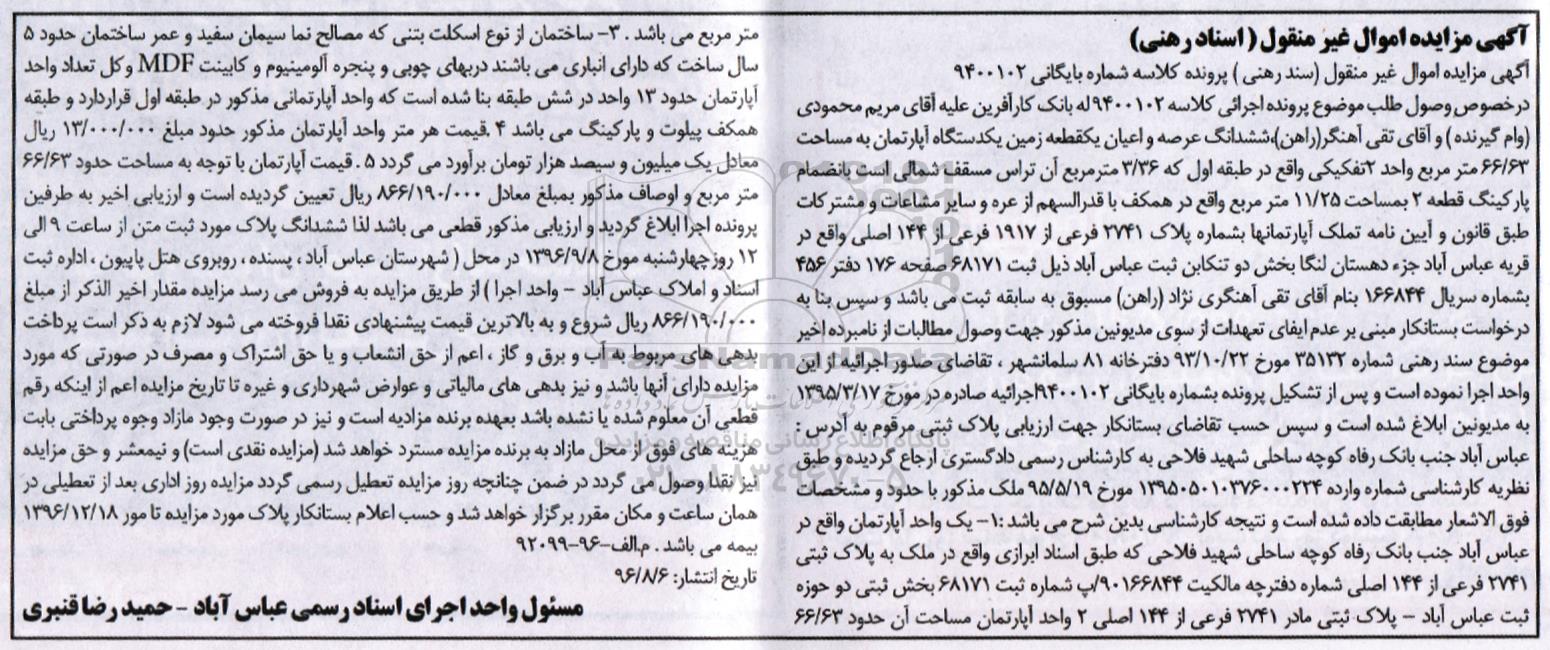 آگهی مزایده اموال غیر منقول (اسناد رهنی)
آگهی مزایده اموال غیر منقول (سند رهنی) پرونده کلاسه شماره بایگانی ۹۴۰۰۱۰۲
درخصوص وصول طلب موضوع پرونده اجرائی کلاسه ۹۴۰۰۱۰۲ له بانک کارآفرین علیه آقای مریم محمودی
(وام گیرنده) و آقای تقی آهنگر(راهن)،ششدانگ عرصه و اعیان یکقطعه زمین یکدستگاه آپارتمان به مساحت
۶۶/۶۳ متر مربع واحد ۲تفکیکی واقع در طبقه اول که ۳/۳۶ مترمربع آن تراس مسقف شمالی است بانضمام
پارکینگ قطعه ۲ بمساحت ۱۱/۲۵ متر مربع واقع در همکف با قدرالسهم از عره و سایر مشاعات و مشترکات
طبق قانون و آیین نامه تملک آپارتمانها بشماره پلاک ۲۷۴۱ فرعی از ۱۹۱۷ فرعی از ۱۴۴ اصلی واقع در
قریه عباس آباد جزء دهستان لنگا بخش دو تنکابن ثبت عباس آباد ذیل ثبت ۶۸۱۷۱ صفحه ۱۷۶ دفتر ۴۵۶
بشماره سریال ۱۶۶۸۴۴ بنام آقای تقی آهنگری نژاد (راهن) مسبوق به سابقه ثبت می باشد و سپس بنا به
درخواست بستانکار مبنی بر عدم ایفای تعهدات از سوی مدیونین مذکور جهت وصول مطالبات از نامبرده اخیر
موضوع سند رهنی شماره ۳۵۱۳۲ مورخ ۹۳/۱۰/۲۲ دفترخانه ۸۱ سلمانشهر ، تقاضای صدور اجرائیه از این
واحد اجرا نموده است و پس از تشکیل پرونده بشماره بایگانی ۹۴۰۰۱۰۲اجرائیه صادره در مورخ ۱۳۹۵/۳/۱۷
به مدیونین ابلاغ شده است و سپس حسب تقاضای بستانکار جهت ارزیابی پلاک ثبتی مرقوم به آدرس :
عباس آباد جنب بانک رفاه کوچه ساحلی شهید فلاحی به کارشناس رسمی دادگستری ارجاع گردیده و طبق
نظریه کارشناسی شماره وارده ۱۳۹۵۰۵۰۱۰۳۷۶۰۰۰۲۲۴ مورخ ۹۵/۵/۱۹ ملک مذکور با حدود و مشخصات
فوق الاشعار مطابقت داده شده است و نتیجه کارشناسی بدین شرح می باشد :۱- یک واحد آپارتمان واقع در
عباس آباد جنب بانک رفاه کوچه ساحلی شهید فلاحی که طبق اسناد ابرازی واقع در ملک به پلاک ثبتی
۲۷۴۱ فرعی از ۱۴۴ اصلی شماره دفترچه مالکیت ۹۰۱۶۶۸۴۴/پ شماره ثبت ۶۸۱۷۱ بخش ثبتی دو حوزه
ثبت عباس آباد - پلاک ثبتی مادر ۲۷۴۱ فرعی از ۱۴۴ اصلی ۲ واحد آپارتمان مساحت آن حدود ۶۶/۶۳
متر مربع می باشد . ۳- ساختمان از نوع اسکلت بتنی که مصالح نما سیمان سفید و عمر ساختمان حدود ۵
سال ساخت که دارای انباری می باشند دربهای چوبی و پنجره آلومینیوم و کابینت MDF وکل تعداد واحد
آپارتمان حدود ۱۳ واحد در شش طبقه بنا شده است که واحد آپارتمانی مذکور در طبقه اول قراردارد و طبقه
همکف پیلوت و پارکینگ می باشد ۴ .قیمت هر متر واحد آپارتمان مذکور حدود مبلغ ۱۳/۰۰۰/۰۰۰ ریال
معادل یک میلیون و سیصد هزار تومان برآورد می گردد ۵ . قیمت آپارتمان با توجه به مساحت حدود ۶۶/۶۳
متر مربع و اوصاف مذکور بمبلغ معادل ۸۶۶/۱۹۰/۰۰۰ ریال تعیین گردیده است و ارزیابی اخیر به طرفین
پرونده اجرا ابلاغ گردید و ارزیابی مذکور قطعی می باشد لذا ششدانگ پلاک مورد ثبت متن از ساعت ۹ الی
۱۲ روزچهارشنبه مورخ ۱۳۹۶/۹/۸ در محل ( شهرستان عباس آباد ، پسنده ، روبروی هتل پاپیون ، اداره ثبت
اسناد و املاک عباس آباد - واحد اجرا ) از طریق مزایده به فروش می رسد مزایده مقدار اخیر الذکر از مبلغ
۸۶۶/۱۹۰/۰۰۰ ریال شروع و به بالاترین قیمت پیشنهادی نقدا فروخته می شود لازم به ذکر است پرداخت
بدهی های مربوط به آب و برق و گاز ، اعم از حق انشعاب و یا حق اشتراک و مصرف در صورتی که مورد
مزایده دارای آنها باشد و نیز بدهی های مالیاتی و عوارض شهرداری و غیره تا تاریخ مزایده اعم از اینکه رقم
قطعی آن معلوم شده یا نشده باشد بعهده برنده مزادیه است و نیز در صورت وجود مازاد وجوه پرداختی بابت
هزینه های فوق از محل مازاد به برنده مزایده مسترد خواهد شد (مزایده نقدی است) و نیمعشر و حق مزایده
نیز نقدا وصول می گردد در ضمن چنانچه روز مزایده تعطیل رسمی گردد مزایده روز اداری بعد از تعطیلی در
همان ساعت و مکان مقرر برگزار خواهد شد و حسب اعلام بستانکار پلاک مورد مزایده تا مور ۱۳۹۶/۱۲/۱۸
بیمه می باشد . م.الف-۹۶-۹۲۰۹۹
تاریخ انتشار: ۹۶/۸/۶
مسئول واحد اجرای اسناد رسمی عباس آباد - حمید رضا قنبری
ParsNamadData
پایگاه اطلاع رسانی مناقصه و مزایده
۰۲۱-۸۸۳۴۹۶۷۰-۵